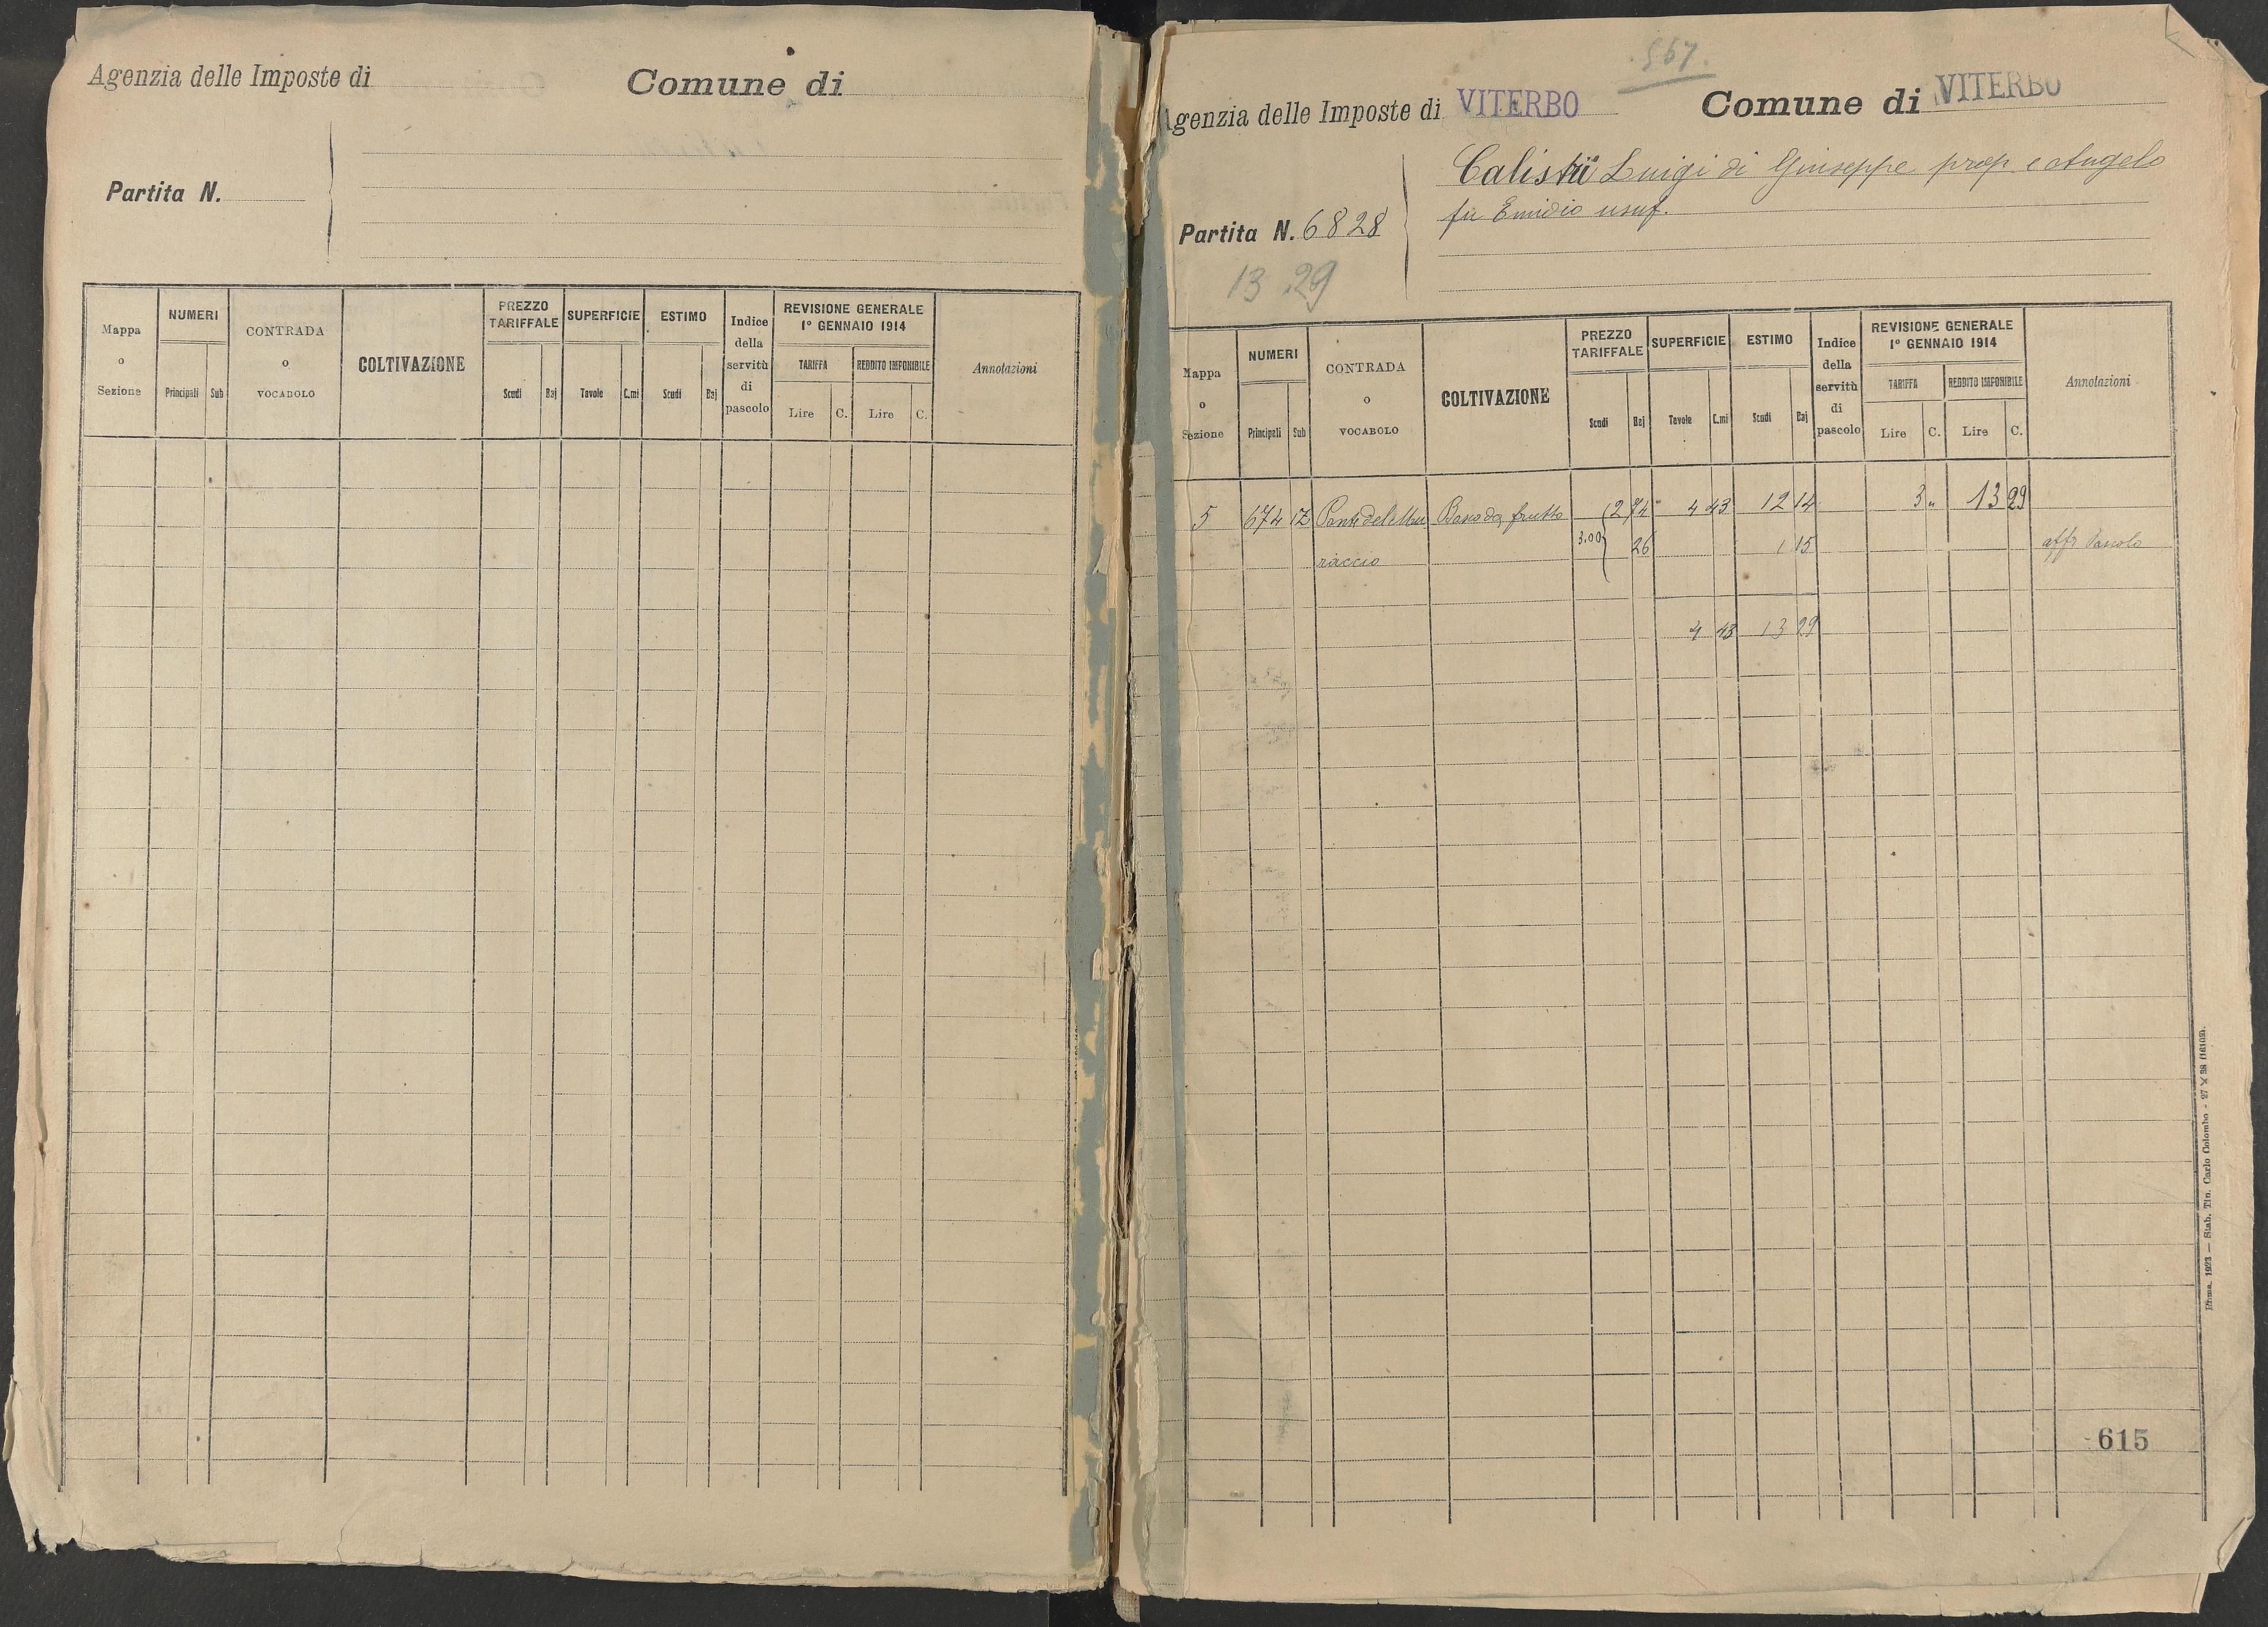 Agenzia delle Imposte di
Comune di
Partita N.
Mappa o Sezione
NUMERI
Principali Sub
CONTRADA o VOCABOLO
COLTIVAZIONE
PREZZO TARIFFALE
Scudi Baj
SUPERFICIE
Tavole C.mi
ESTIMO
Scudi Baj
Indice della servitù di pascolo
REVISIONE GENERALE
1º GENNAIO 1914
TARIFFA REDDITO IMPONIBILE
Lire C. Lire C.
Annotazioni
567
Agenzia delle Imposte di VITERBO
Comune di VITERBO
Calisti Luigi di Giuseppe prop. e Angelo
fu Emidio usuf.
Partita N. 6828
13.29
Mappa o Sezione
NUMERI
Principali Sub
CONTRADA o VOCABOLO
COLTIVAZIONE
PREZZO TARIFFALE
Scudi Baj
SUPERFICIE
Tavole C.mi
ESTIMO
Scudi Baj
Indice della servitù di pascolo
REVISIONE GENERALE
1º GENNAIO 1914
TARIFFA REDDITO IMPONIBILE
Lire C. Lire C.
Annotazioni
5 674 Bosco da frutto 2 74 4 43 12 14 3 " 13 29
raccio 3.00 26 1 15 affr Pascolo
4 43 13 29
615
Roma, 1923 — Stab. Tip. Carlo Colombo